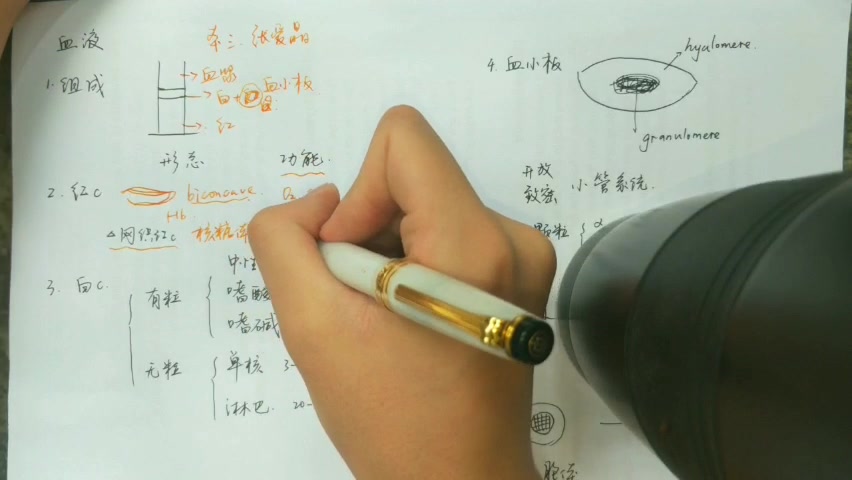 血液
1. 组成
血浆
白+血小板
红
形态 功能
2. 红c biconcave. O₂
Hb
△网织红c 核糖
3. 白c.
有粒
中性
嗜酸
嗜碱
无粒
单核 3-
淋巴. 20-
4. 血小板
hyalomere.
granulomere
开放
致密
小管系统.
颗粒 α